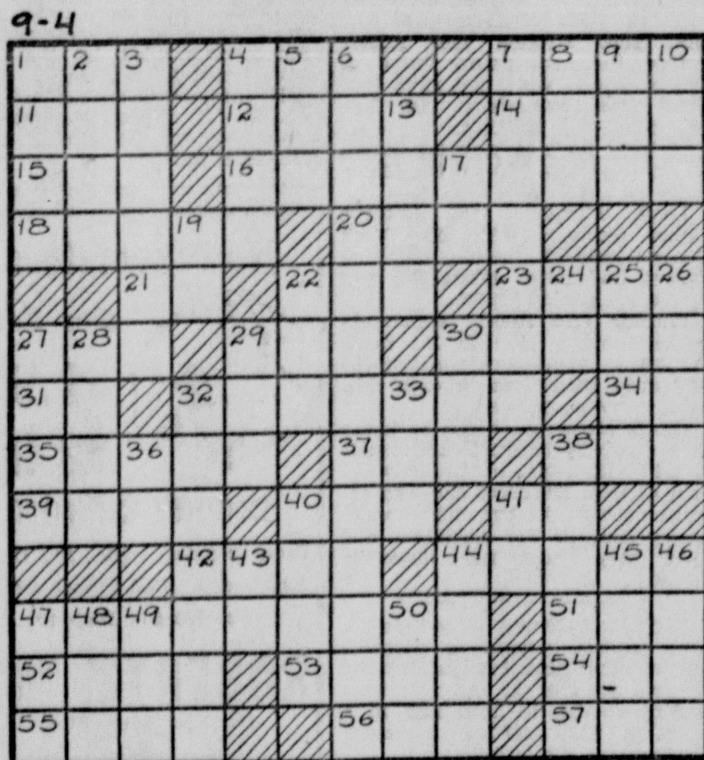 9-4
1 2 3 4 5 6 7 8 9 10
11 12 13 14
15 16 17
18 19 20
21 22 23 24 25 26
27 28 29 30
31 32 33 34
35 36 37 38
39 40 41
42 43 44 45 46
47 48 49 50 51
52 53 54
55 56 57